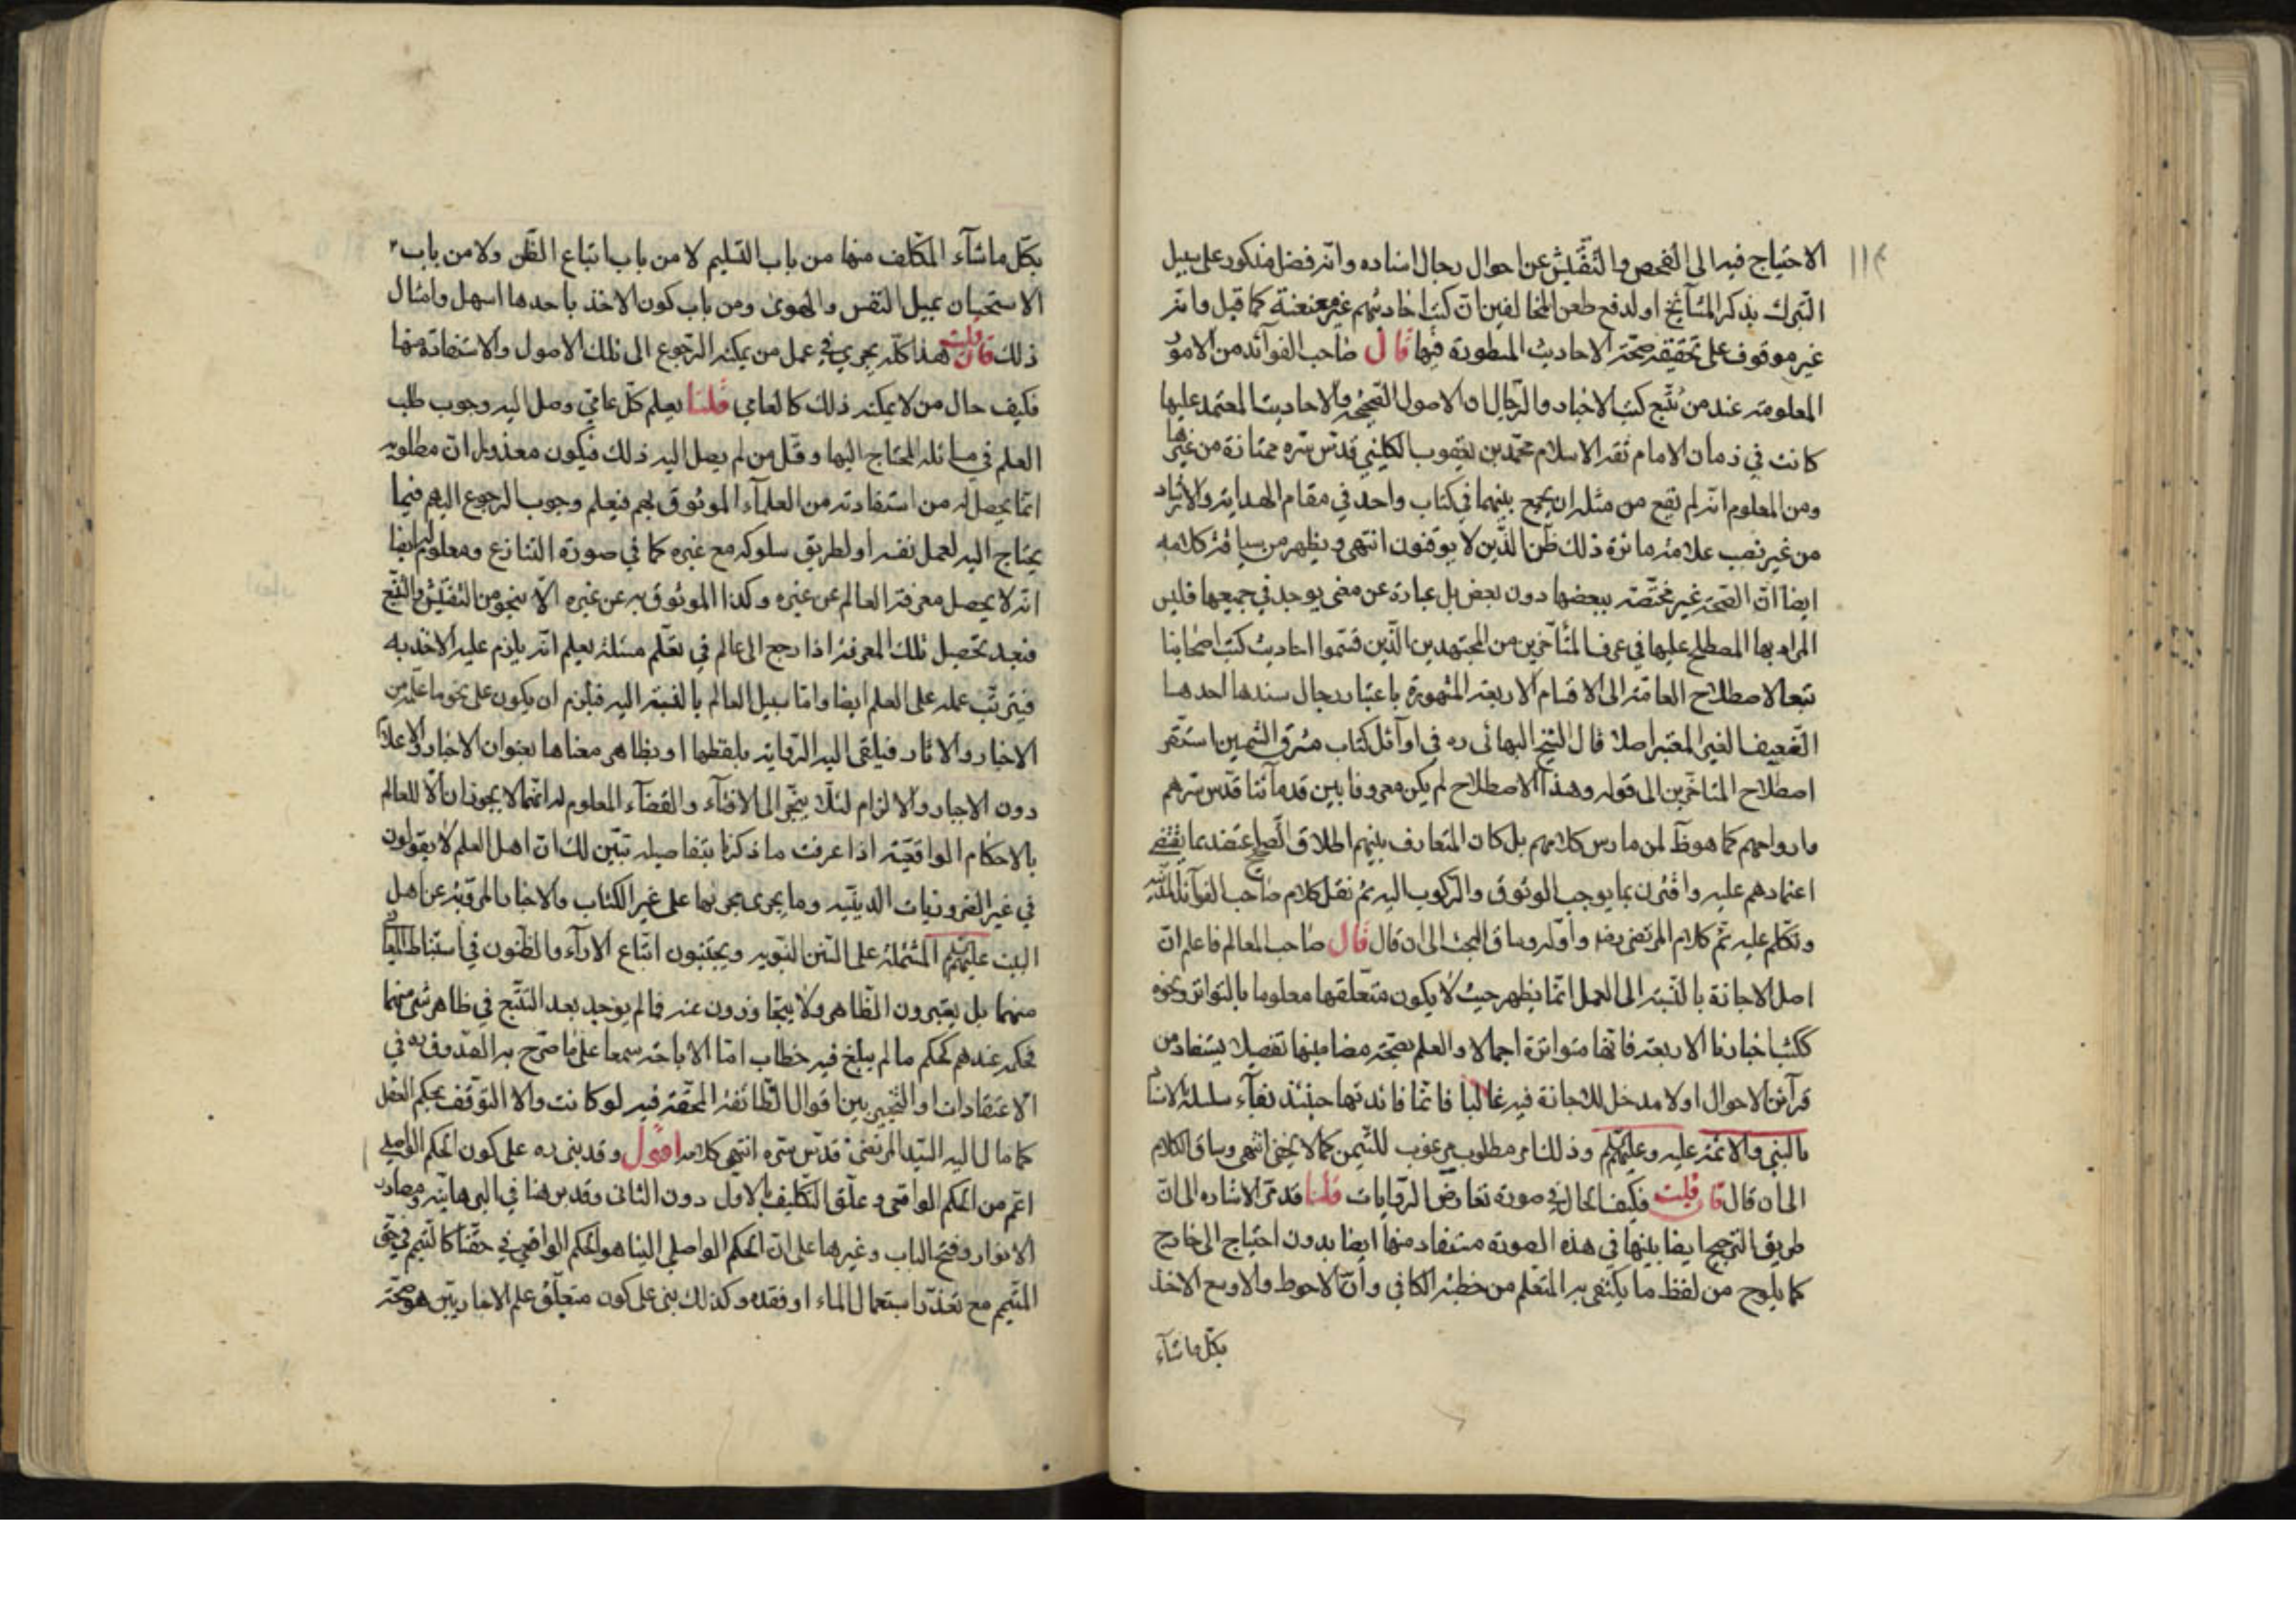 ١١٤
الاحتياج فيه الى الفحص والتفتيش عن احوال رجال اسناده وانه فضل مذكور على سبيل
التبرك بذكر المشآئخ او لدفع طعن المخالفين ان كتب اخاديثهم غير معنعنة كما قيل وانه
غير موقوف على تحقيقه صحة الاحاديث المسطورة فيها قال صاحب الفوآئد من الامور
المعلومة عند من تتبع كتب الاخبار والرجال ان الاصول الصحيحة والاحاديث المعتمد عليها
كانت في زمان الامام ثقة الاسلام محمد بن يعقوب الكليني قدس سره ممتازة من غيرها
ومن المعلوم انه لم يقع من مثله ان يجمع بينهما في كتاب واحد في مقام الهداية والارشاد
من غير نصب علامة مائزة ذلك ظن الذين لا يوقنون انتهى ويظهر من سياقة كلامه
ايضا ان الصحة غير مختصة ببعضها دون بعض بل عبارة عن معنى يوجد في جميعها فليس
المراد بها المصطلح عليها في عرف المتأخرين من المجتهدين الذين قسموا احاديث كتب اصحابنا
تبعا لاصطلاح العامة الى الاقسام الاربعة المشهورة باعتبار رجال سندها احدها
الضعيف الغير المعتبر اصلا قال الشيخ البهائى ره في اوآئل كتاب مشرق الشمسين استقر
اصطلاح المتاخرين الى قوله وهذا الاصطلاح لم يكن معروفا بين قدمآئنا قدس سرهم
وارواحهم كما هو ظ لمن مارس كلامهم بل كان المتعارف بينهم اطلاق الصحيح على ما اعتضد بما يقتضى
اعتمادهم عليه واقترن بما يوجب الوثوق والركون اليه ثم نقل كلام صاحب الفوآئد المدنية
وتكلم عليه ثم كلام المرتضى رضه واوله وساق البحث الى ان قال قال صاحب المعالم فاعلم ان
اصل الاجازة بالنسبة الى العمل انما يظهر حيث لا يكون متعلقها معلوما بالتواتر ونحوه
ككتب اخبارنا الاربعة فانها متواترة اجمالا والعلم بصحة مضامينها تفصيلا يستفاد من
قرآئن الاحوال ولا مدخل للاجازة فيه غالبا فانما فائدتها حينئذ بقآء سلسلة الاسناد
بالنبي والائمة عليه وعليهم وذلك امر مطلوب مرغوب للتيمن كما لا يخفى انتهى وساق الكلام
الى ان قال فان قلت فكيف الحال في صورة تعارض الروايات قلنا قد مر الاشارة الى ان
طريق الترجيح ايضا بينها في هذه الصورة مستفاد منها ايضا بدون احتياج الى خارج
كما يلوح من لفظ ما يكتفى به المتعلم من خطبة الكافي وان الاحوط والاوسع الاخذ
بكل ما شآء
بكل ما شآء المكلف منها من باب التسليم لا من باب اتباع الظن ولا من باب
الاستحسان بميل النفس والهوى ومن باب كون الاخذ باحدها اسهل وامثال
ذلك فان قلت هذا كله يجري في عمل من يمكنه الرجوع الى تلك الاصول والاستفادة منها
فكيف حال من لا يمكنه ذلك كالعامي قلنا يعلم كل عامي وصل اليه وجوب طلب
العلم في مسائله المحتاج اليها وقل من لم يصل اليه ذلك فيكون معذورا ان مطلوبه
انما يحصل له من استفادته من العلمآء الموثوق بهم فيعلم وجوب الرجوع اليهم فيما
يحتاج اليه لعمل نفسه او لطريق سلوكه مع غيره كما في صورة التنازع ومعلوم له ايضا
انه لا يحصل معرفة العالم عن غيره وكذا الموثوق به عن غيره الا بنحو من التفتيش والتتبع
فبعد تحصيل تلك المعرفة اذا رجع الى عالم في تعلم مسئلة يعلم انه يلزم عليه الاخذ به
فيترتب عمله على العلم ايضا واما سبيل العالم بالنسبة اليه فيلزم ان يكون على نحو ما علمه من
الاخبار والاثار فيلقى اليه الرواية بلفظها او بظاهر معناها بعنوان الاخبار والاعلام
دون الاجبار والالزام لئلا ينجر الى الافتآء والقضآء المعلوم له انهما لا يجوزان الا للعالم
بالاحكام الواقعية اذا عرفت ما ذكرنا بتفاصيله تبين لك ان اهل العلم لا يقولون
في غير الضروريات الدينية وما يجرى مجراها على غير الكتاب والاخبار المروية عن اهل
البيت عليهم المشتملة على السنن النبوية ويجتنبون اتباع الارآء والظنون في استنباط العقائد
منهما بل يعتبرون الظاهر ولا يتجاوزون عنه فما لم يوجد بعد التتبع في ظاهر شىء منهما
فحكمه عندهم كحكم ما لم يبلغ فيه خطاب اما الاباحة سمعا على ما صرح به الصدوق ره في
الاعتقادات او التخيير بين اقوال الطائفة المحقة فيه لو كانت والا التوقف بحكم العقل
كما مال اليه السيد المرتضى قدس سره انتهى كلامه اقول وقد بنى ره على كون الحكم الواصلى
اعم من الحكم الواقعى وعلق التكليف بالاول دون الثانى وقد برهنا في البرهانية ومصادر
الانوار وفتح الباب وغيرها على ان الحكم الواصلي الينا هو الحكم الواقعي في حقنا كالتيمم في حق
المتيمم مع تعذر استعمال الماء او فقده وكذلك بنى على كون متعلق علم الاخباريين هو صحة